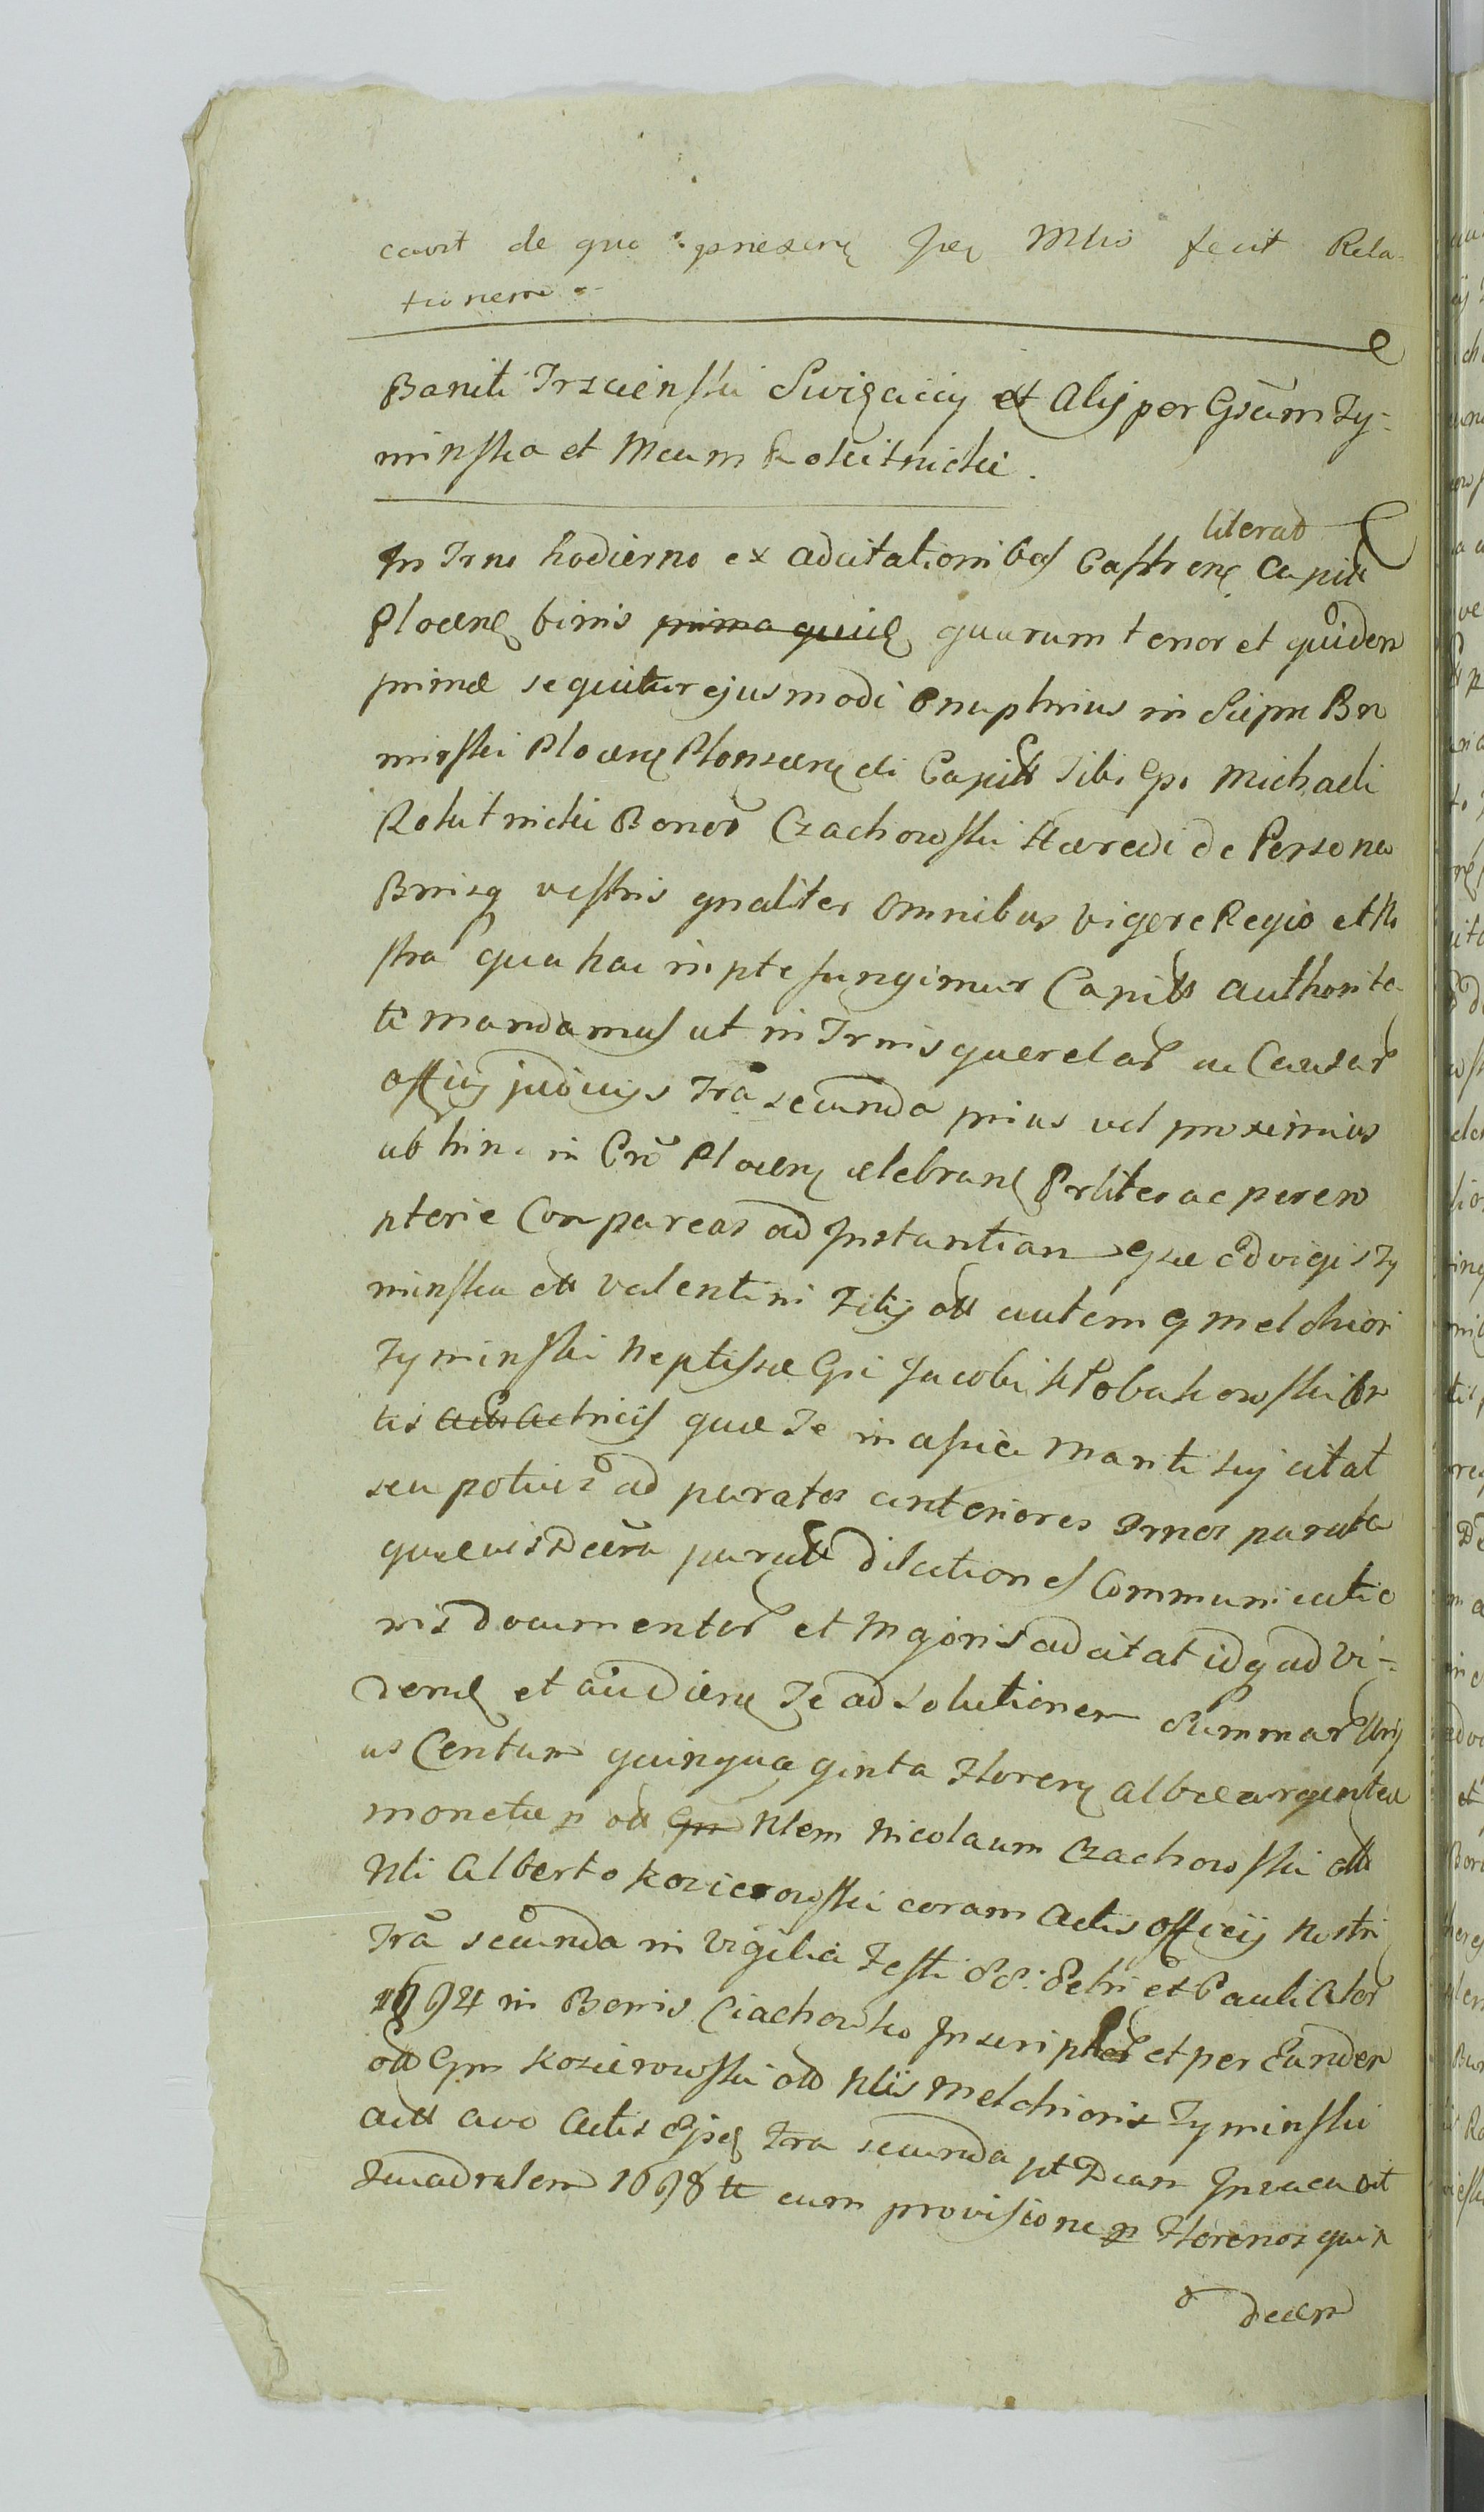 cavit de quo praesens Jeg Mtio fecit Rela-
tionem
Baniti Trscienski Swizaciy et Alijs per Gsam Ty-
minska et Mcum Rokitnicki.
literad
In Trno hodierno ex adcitationibus Castren Capit
Plocen binis prima quid quarum tenor et quidem
primae sequitur ejusmodi Onuphrius in Siepn Bro
minski Plocen Plonscen eti Capitt Tibi Gso Michaeli
Rokitnicki Bonor Czachowski Haeredi de Persona
Bnisq vestris gnaliter omnibus vigore Regio et No
stra qua hac in pte fungimur Capitt authorita
te mandamus ut in Trnis querelar ac Causar
officij judicijs Fra secunda prius vel proximius
ab hinc in Cro Plocen celebran Prliter ac perem
ptorie Compareas ad Instantiam Gsae Edvigis Ty
minska ott Valentini Filij ott autem G Melchiori
Tyminski Neptissae Gsi Jacobi Kłobukowski
tis Actricis quae Te in assia Mariti sui citat
seu potius ad paratos anteriores Trnos parata
quaevis Decra parata dilationes Communicatio
nis documentor et Mgoris adcitat idq ad vi-
dend et audiend Te ad solutionem Summar Uni
us Centum quinquaginta Floren albae argenteae
monetae p ott Gn Nlem Nicolaum Czachowski ott
Nli Alberto Kozierowski coram Actis officij nostri
Fra secunda in Vigilia Festi SS: Petri et Pauli Aptor
1694 in Bonis Ciachowko Inscriptar et per Eundem
ott Gsm Kozierowski ott Nlis Melchioris Tyminski
Actt avo Actis Ejsd Fra secunda pt Dcam Invocavit
Quadralem 1698 tt cum provisione p Florenos quin
decem